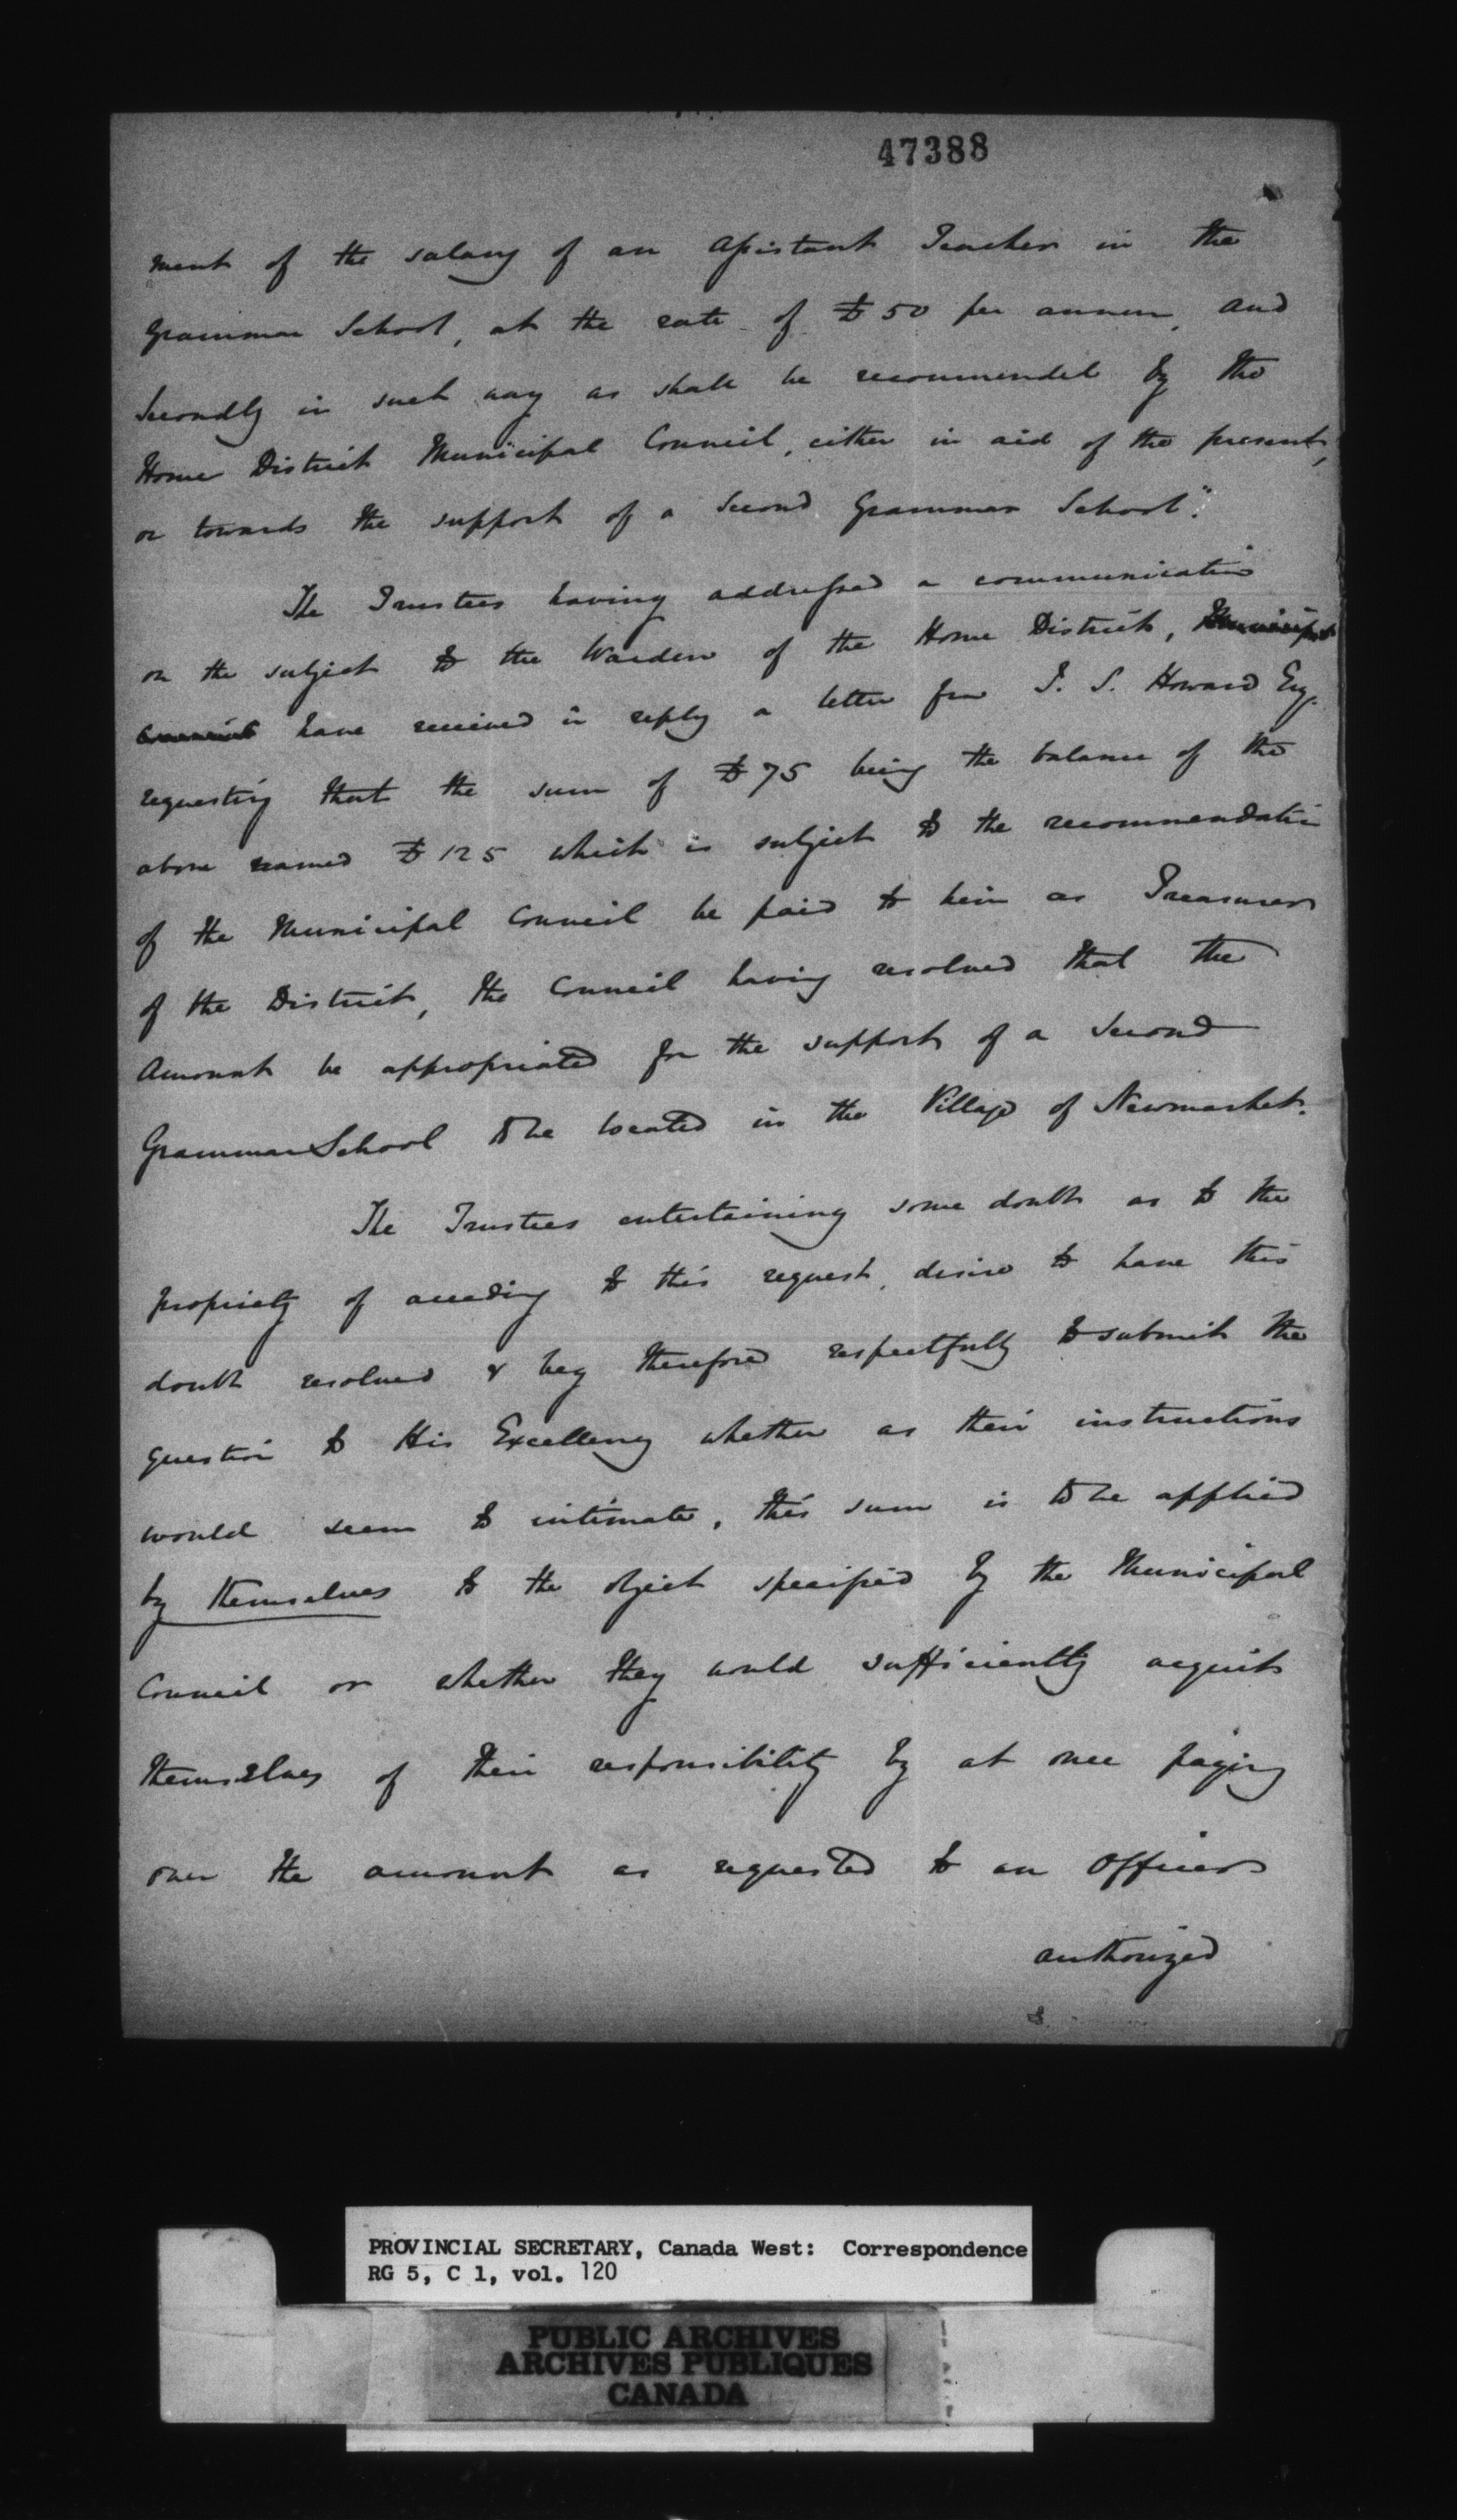 47388
ment of the salary of an Assistant Teacher in the
Grammar School, at the rate of £50 per annum, and
Secondly in such way as shall be recommended by the
Home District Municipal Council, either in aid of the present,
or towards the support of a Second Grammar School."
The Trustees having addressed a communication
on the subject to the Warden of the Home District, Municipal
Council have received in reply a letter from J. S. Howard Esq.
requesting that the sum of £75 being the balance of the
above named £125 which is subject to the recommendation
of the Municipal Council be paid to him as Treasurer
of the District, the Council having resolved that the
Amount be appropriated for the support of a Second
Grammar School to be located in the Village of Newmarket.
The Trustees entertaining some doubt as to the
propriety of acceding to this request, desire to have this
doubt resolved & beg therefore respectfully to submit the
question to His Excellency whether as their instructions
would seem to intimate, this sum is to be applied
by themselves to the object specified by the Municipal
Council or whether they would sufficiently acquit
themselves of their responsibility by at once paying
over the amount as requested to an Officer
authorized
PROVINCIAL SECRETARY, Canada West: Correspondence
RG 5, C 1, vol. 120
PUBLIC ARCHIVES
ARCHIVES PUBLIQUES
CANADA